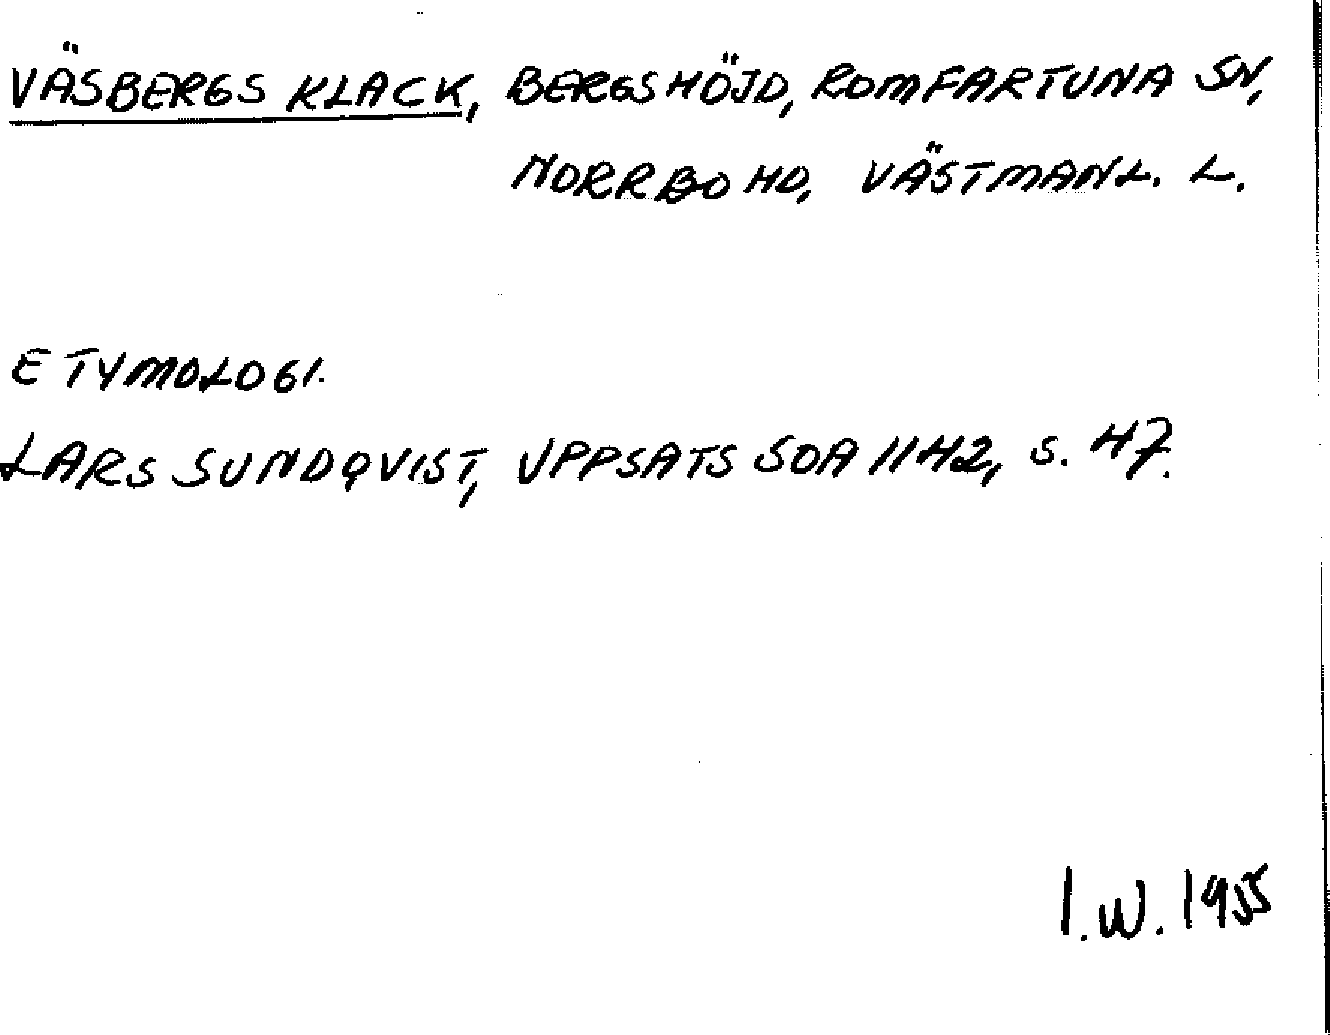 VÄSBERGS KLACK, BERGSHÖJD, ROMFARTUNA SN,
NORRBO HD, VÄSTMANL. L.
ETYMOLOGI.
LARS SUNDQVIST, UPPSATS SOA 1142, S. 47.
I.W. 1955